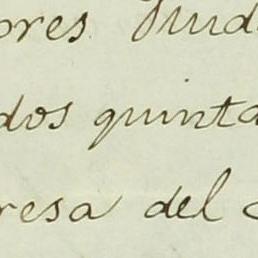 ores Viud
dos quinta
resa del